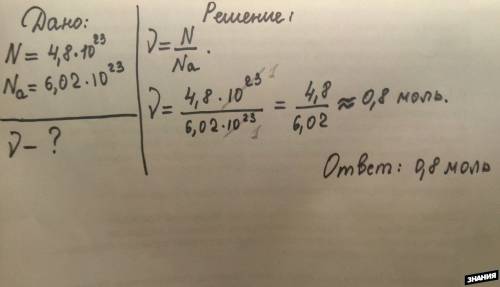 Дано:
N = 4,8·10²³
Nа = 6,02·10²³
ν – ?
Решение:
ν = N/Nа.
ν = 4,8·10²³/6,02·10²³ = 4,8/6,02 ≈ 0,8 моль.
Ответ: 0,8 моль
ЗНАНИЯ